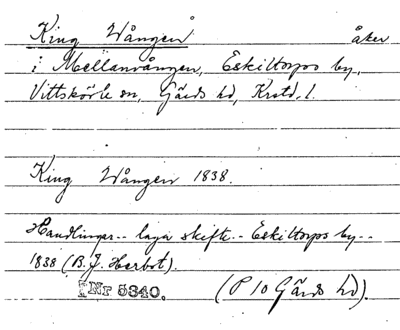 King Wången åker
i Mellanvången, Eskiltorps by,
Vittskövle sn, Gärds hd, Krstd. l.
King Wången 1838.
Handlingar -- laga skifte -- Eskiltorps by --
1838 (B. J. Herbst).
Nr 5340. (P 10 Gärds hd).